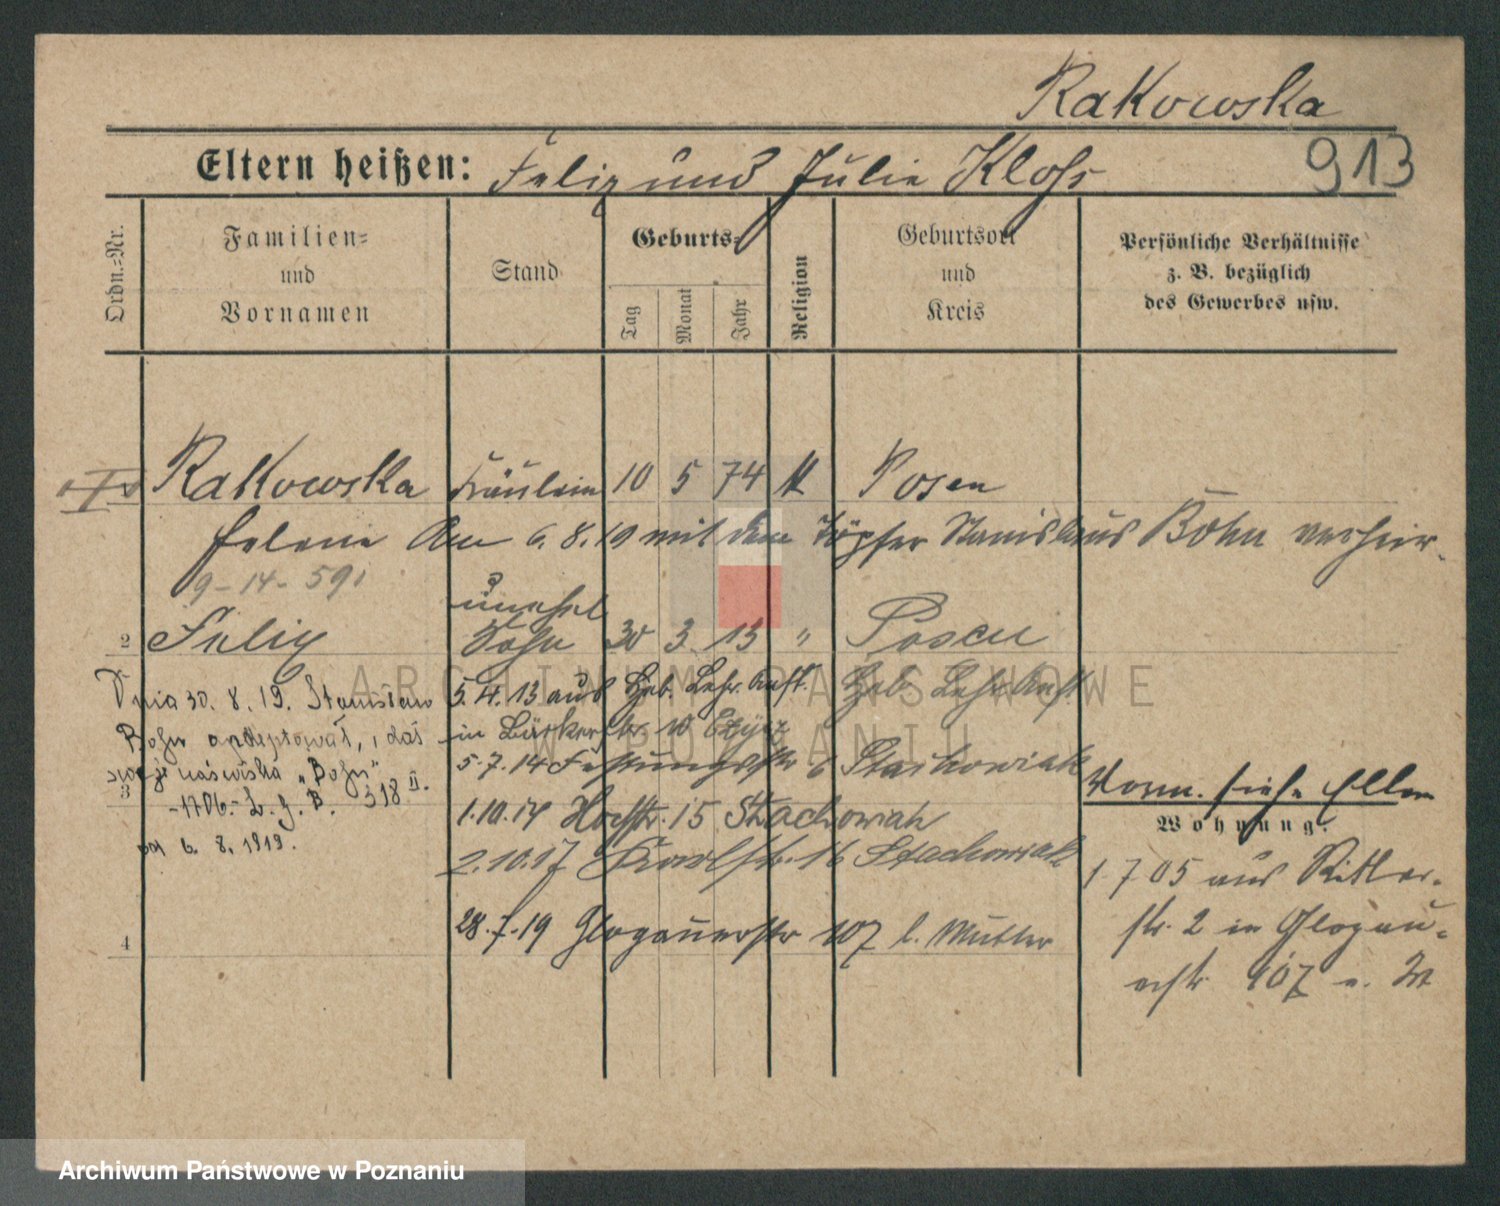 Rakowska
913
Eltern heißen: Felix und Julie Kloss
Ordn.-Nr.
Familien- und Vornamen
Stand
Geburts-
Tag
Monat
Jahr
Religion
Geburtsort und Kreis
Persönliche Verhältnisse z. B. bezüglich des Gewerbes usw.
Rakowska Fräulein 10 5 74 K Posen
Helene Am 6.8.19 mit dem Töpfer Stanislaus Bohn verheir.
9-14-591
unehel
2 Felix Sohn 30 3 13 " Posen
Dnia 30. 8. 19. Stanisław
Bohn
nazwiska „Bohn"
3
318 II.
6. 8. 1919.
5.4.13 aus Heb. Lehr Anst. Heb. Lehr Anst
in
5.7.14 Festungsstr 6 Stachowiak
1.10.14 15 Stachowiak
2.10.17 16 Stachowiak
28.7.19 Glogauerstr 107 b. Mutter
4
Vorm. siehe Eltern
Wohnung:
1 7 05 aus Ritter-
str. 2 in Glogau-
erstr. 107
ARCHIWUM PAŃSTWOWE
W POZNANIU
Archiwum Państwowe w Poznaniu